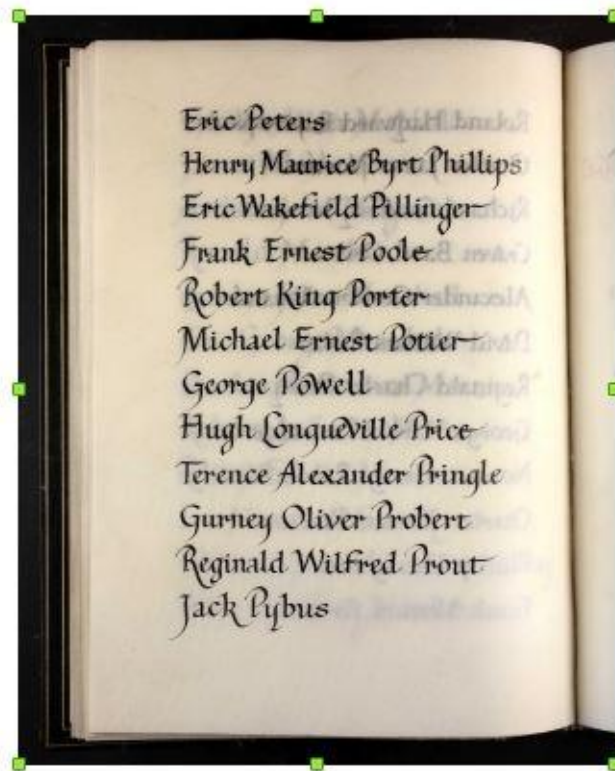 Eric Peters
Henry Maurice Byrt Phillips
Eric Wakefield Pillinger
Frank Ernest Poole
Robert King Porter
Michael Ernest Potier
George Powell
Hugh Longueville Price
Terence Alexander Pringle
Gurney Oliver Probert
Reginald Wilfred Prout
Jack Pybus